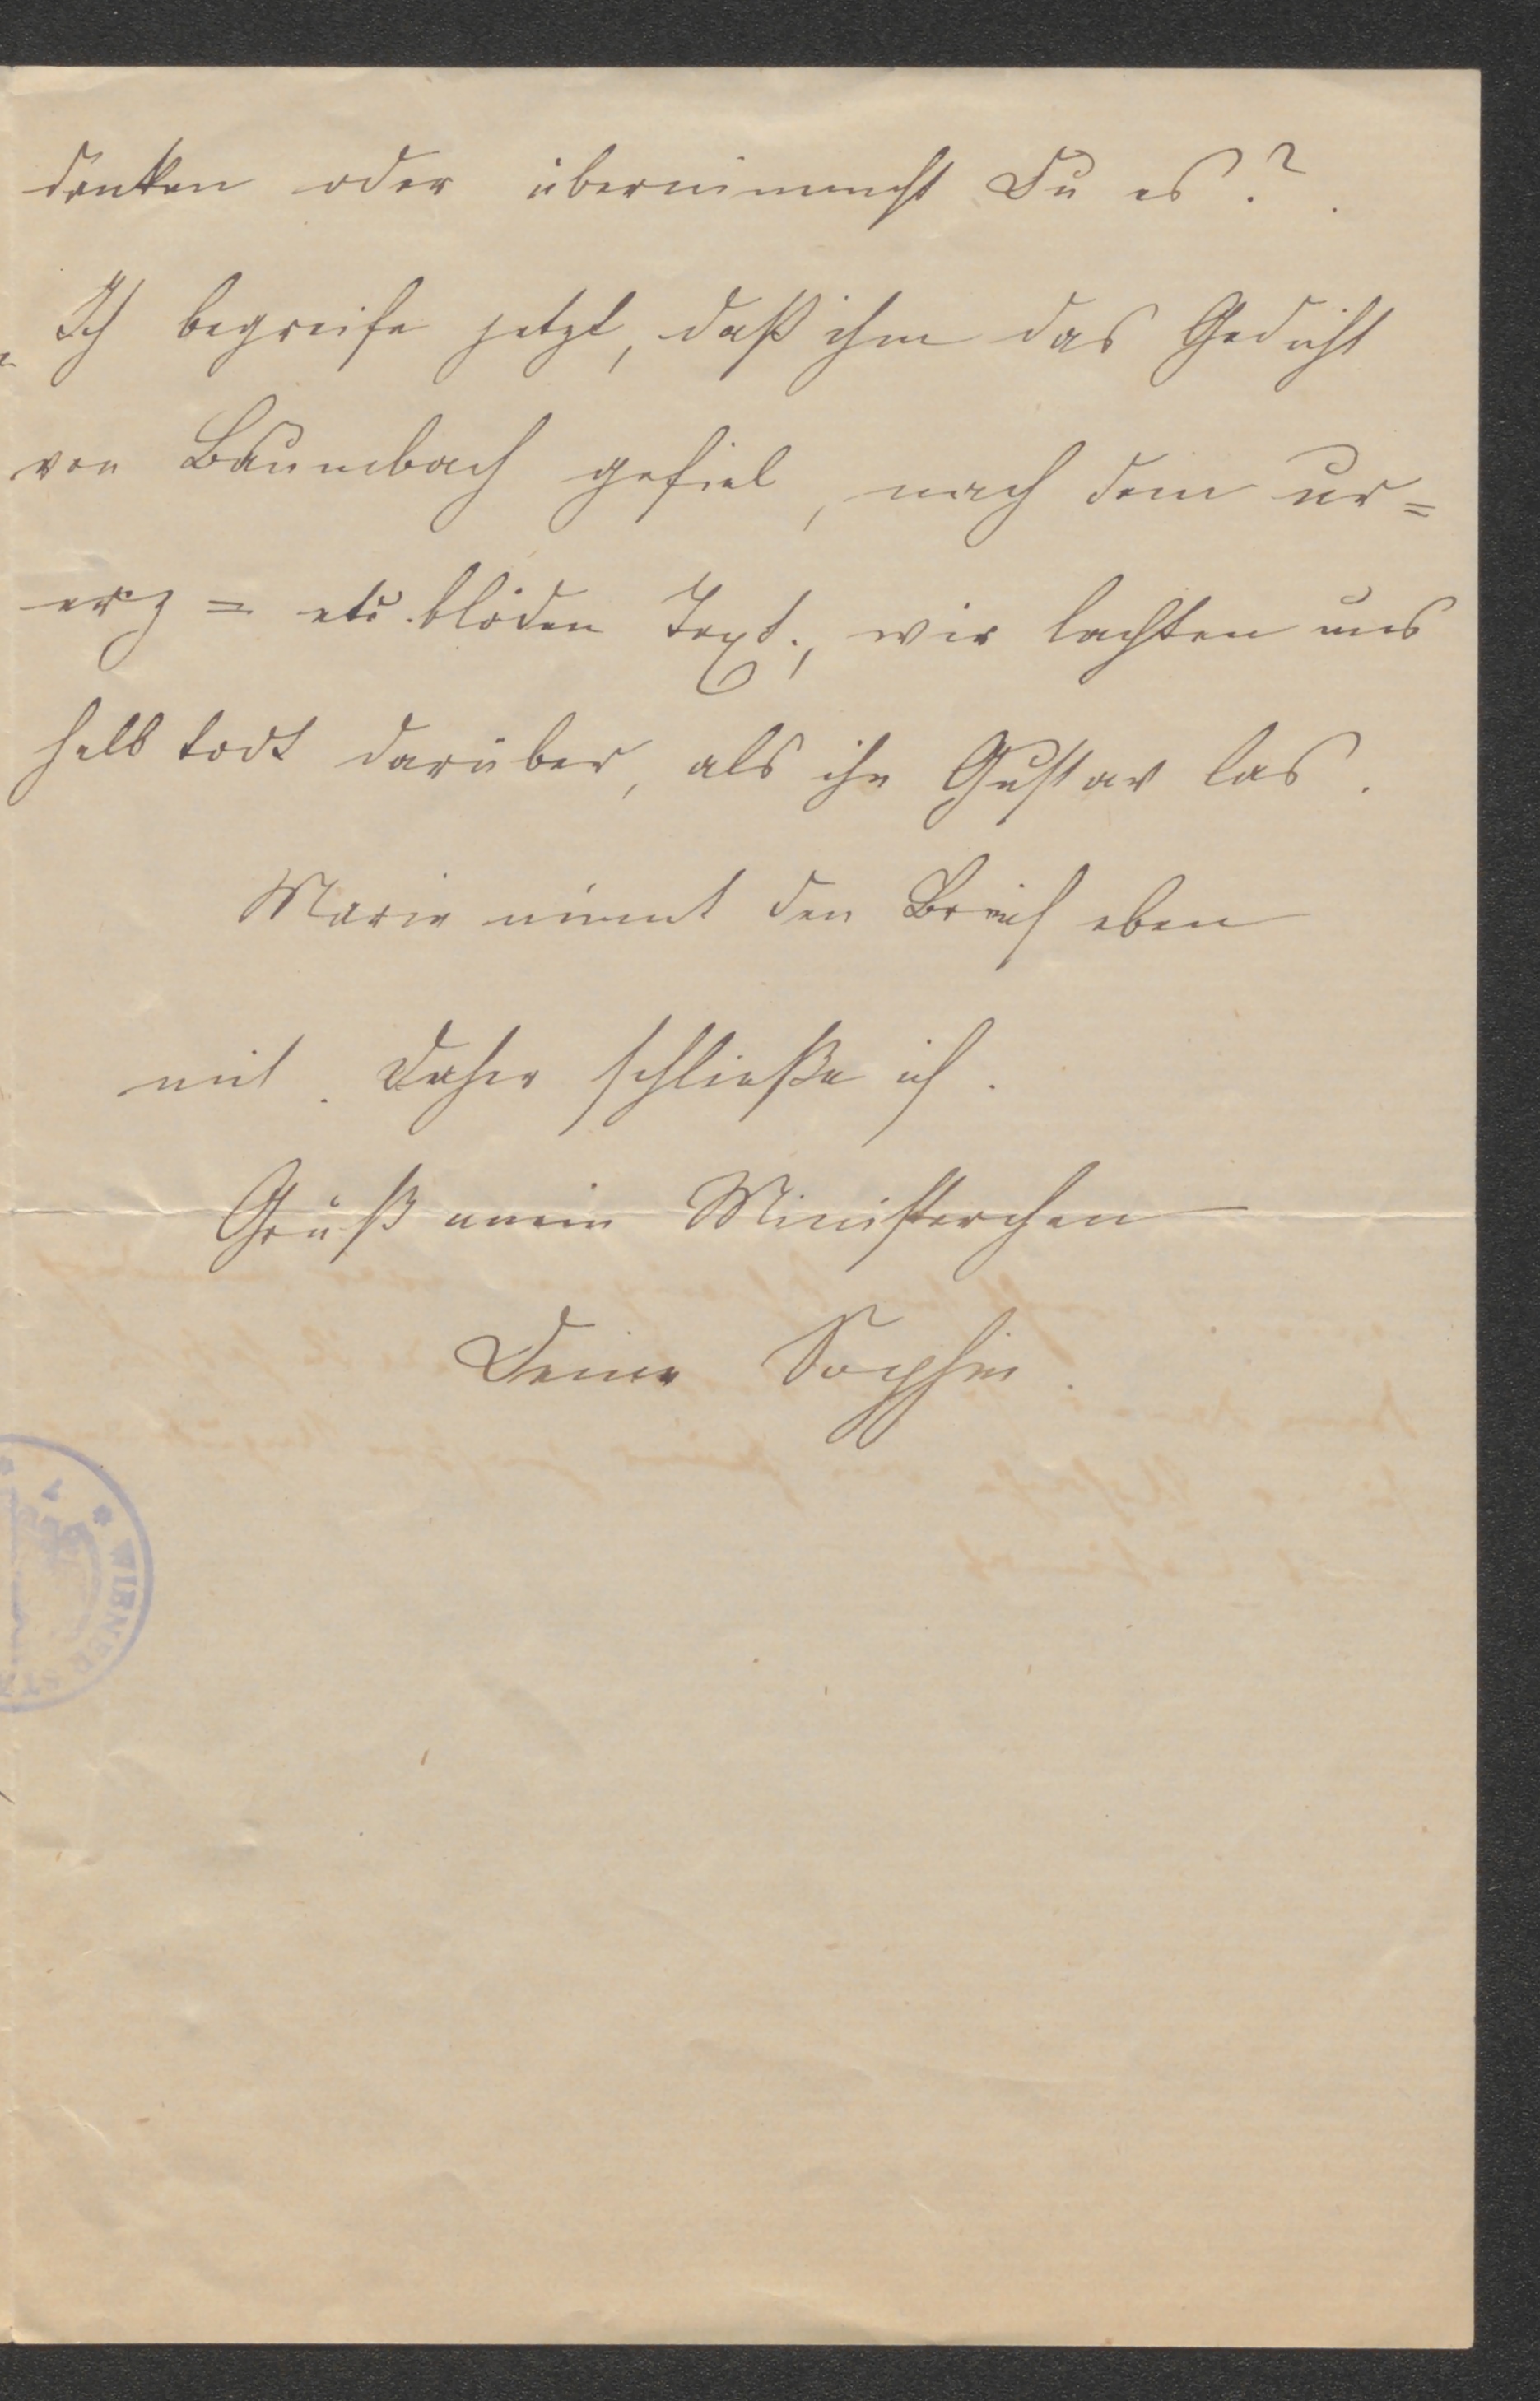 danken oder übernimmst Du es?
Ich begreife jetzt, daß ihm das Gedicht
von Baumbach gefiel, nach dem ur=
erz= etc. blöden Text., wir lachten uns
halb todt darüber, als ihn Gustav las.
Marie nimmt den Brief eben
mit. Daher schließe ich.
Grüß mein Ministerchen
Deine Sophie.
WIENER ST